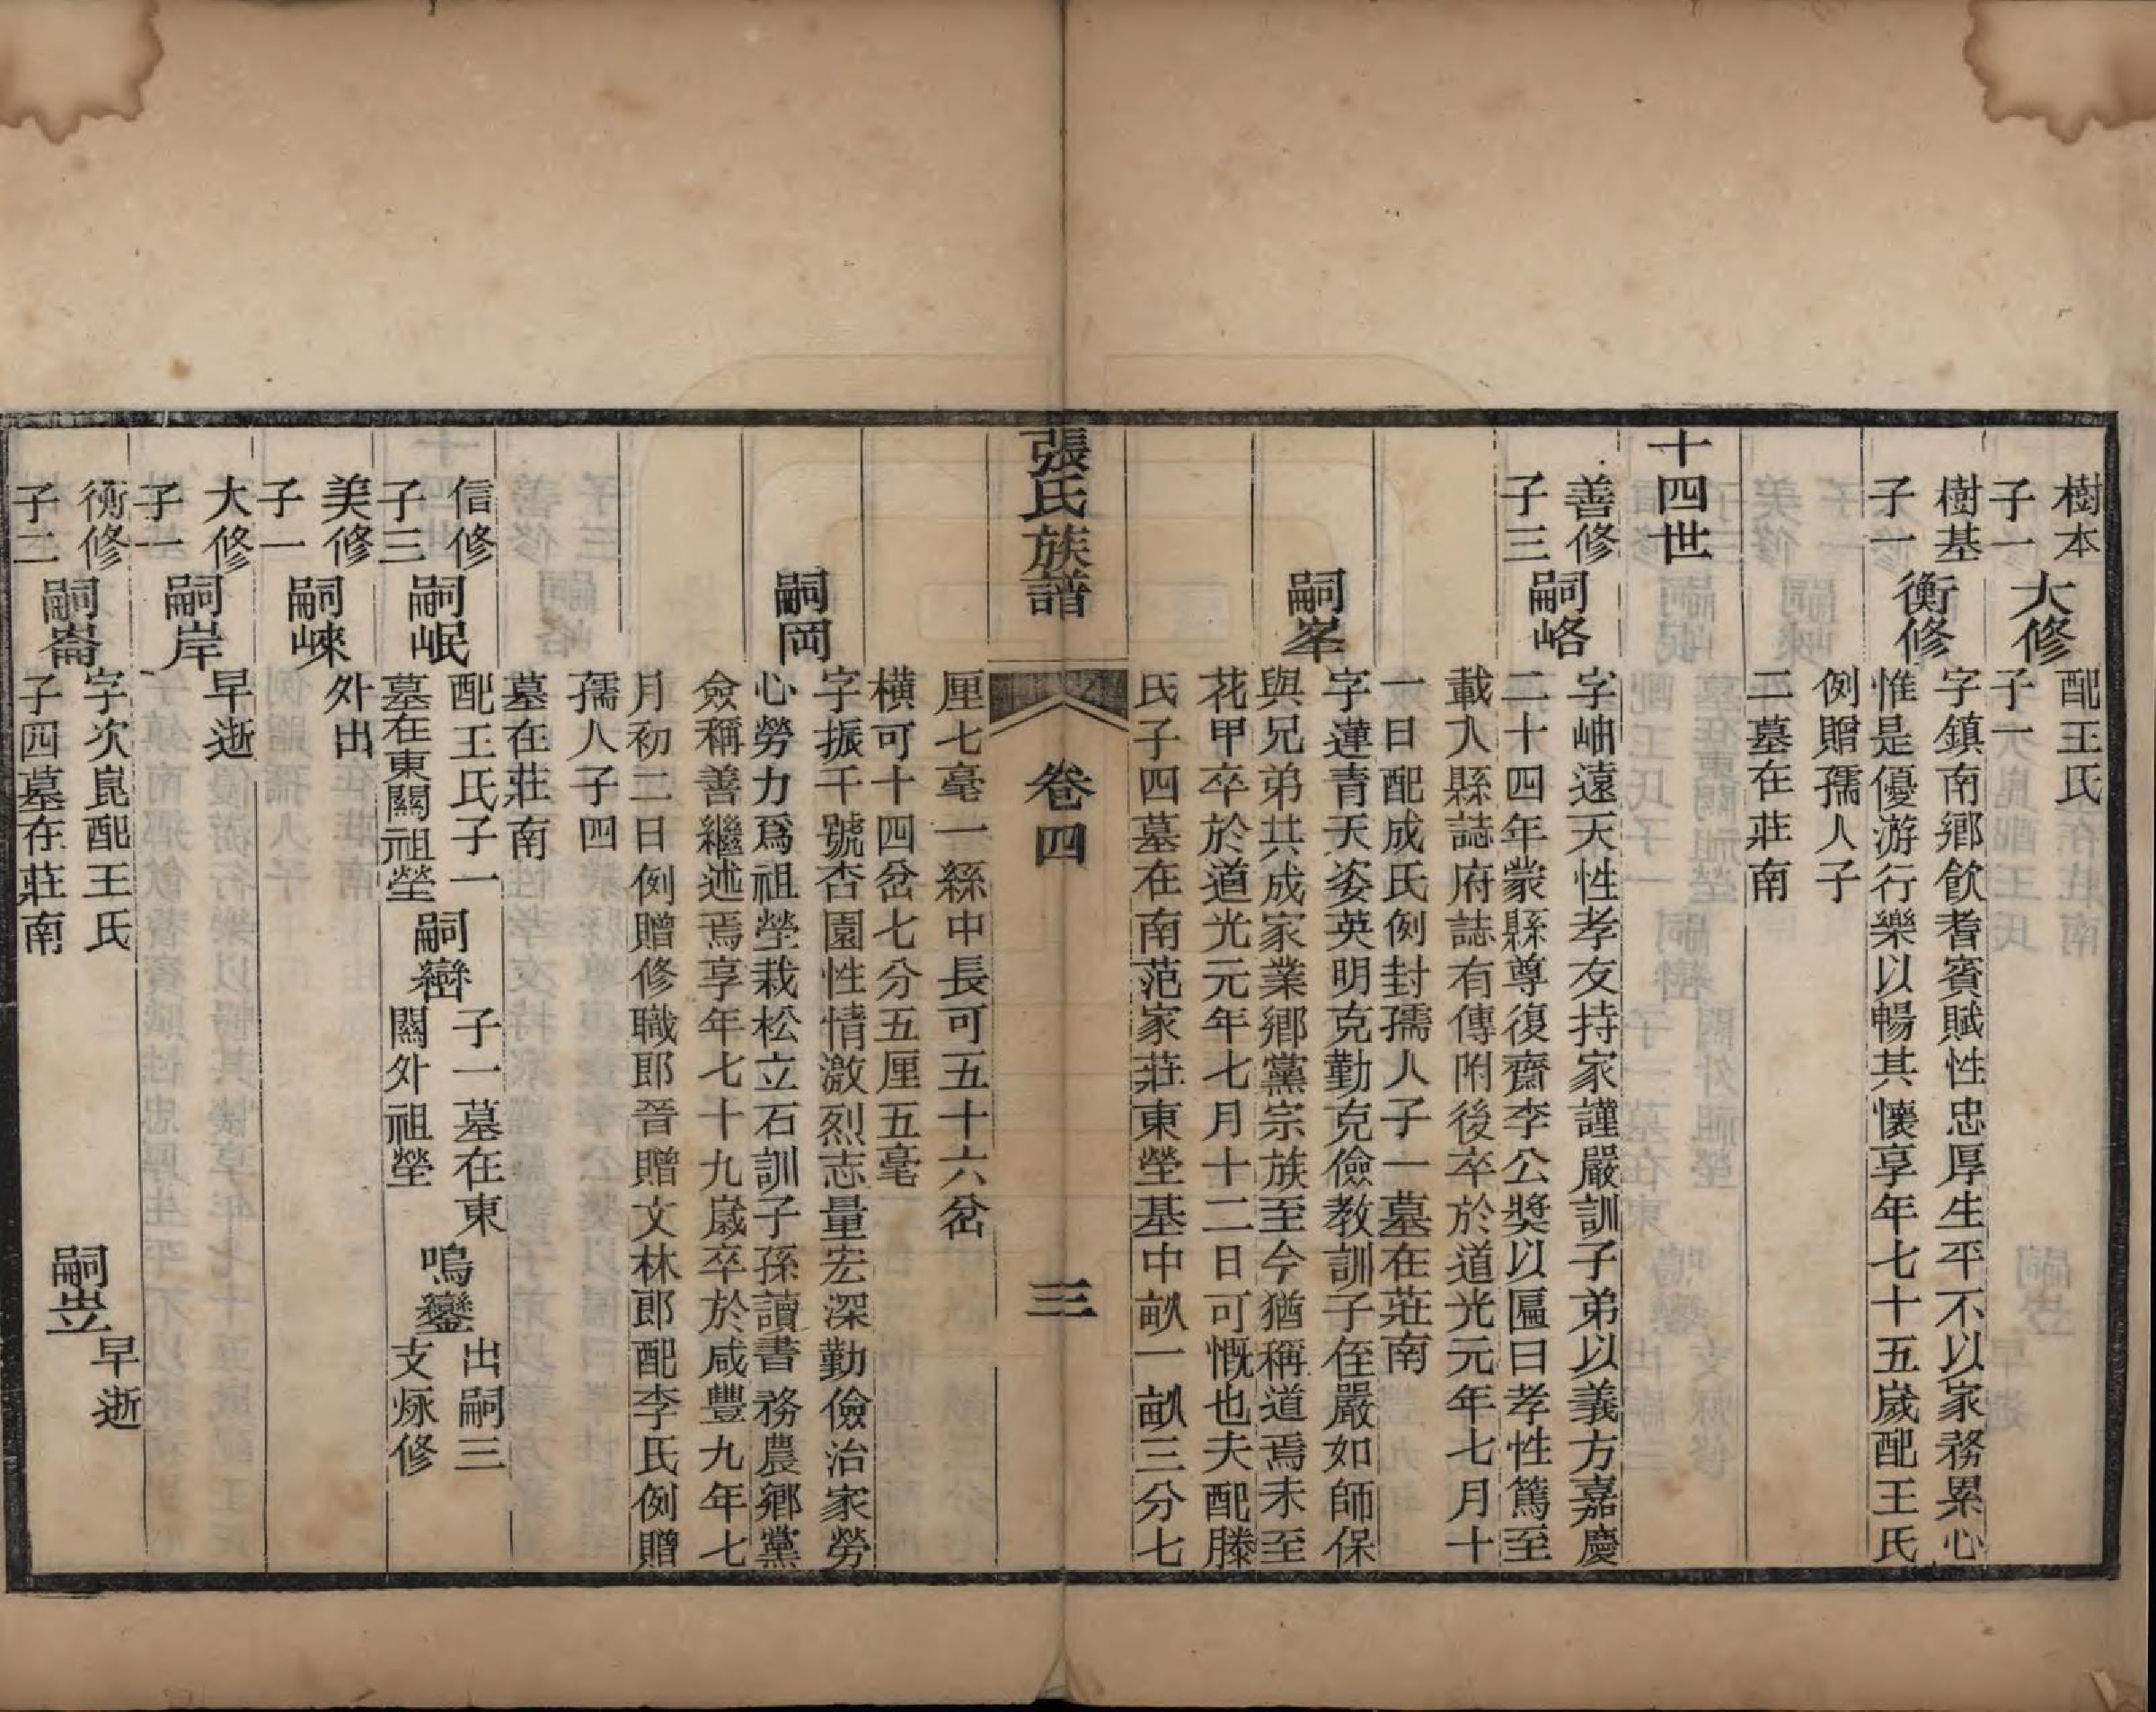 樹本子一 大修 配王氏
子一
樹基子一 衡修 字鎮南鄉飲耆賓賦性忠厚生平不以家務累心
惟是優游行樂以暢其懷享年七十五歲配王氏
例贈孺人子
二墓在莊南
十四世
善修子三 嗣峈 字岫遠天性孝友持家謹嚴訓子弟以義方嘉慶
二十四年蒙縣尊復齋李公獎以匾曰孝性篤至
載入縣誌府誌有傳附後卒於道光元年七月十
一日配成氏例封孺人子一墓在莊南
嗣峯 字蓮青天姿英明克勤克儉教訓子侄嚴如師保
與兄弟共成家業鄉黨宗族至今猶稱道焉未至
花甲卒於道光元年七月十二日可慨也夫配滕
氏子四墓在南范家莊東塋基中畝一畝三分七
張氏族譜 卷四 三
厘七毫一絲中長可五十六岔
橫可十四岔七分五厘五毫
嗣岡 字振千號杏園性情激烈志量宏深勤儉治家勞
心勞力爲祖塋栽松立石訓子孫讀書務農鄉黨
僉稱善繼述焉享年七十九歲卒於咸豐九年七
月初二日例贈修職郎晉贈文林郎配李氏例贈
孺人子四
墓在莊南
信修子三 嗣岷 配王氏子一
墓在東關祖塋
嗣巒 子一墓在東
關外祖塋
鳴鑾 出嗣三
支烁修
美修子一 嗣崍 外出
大修子一 嗣岸 早逝
衡修子二 嗣崙 字次崑配王氏
子四墓在莊南
嗣岦 早逝